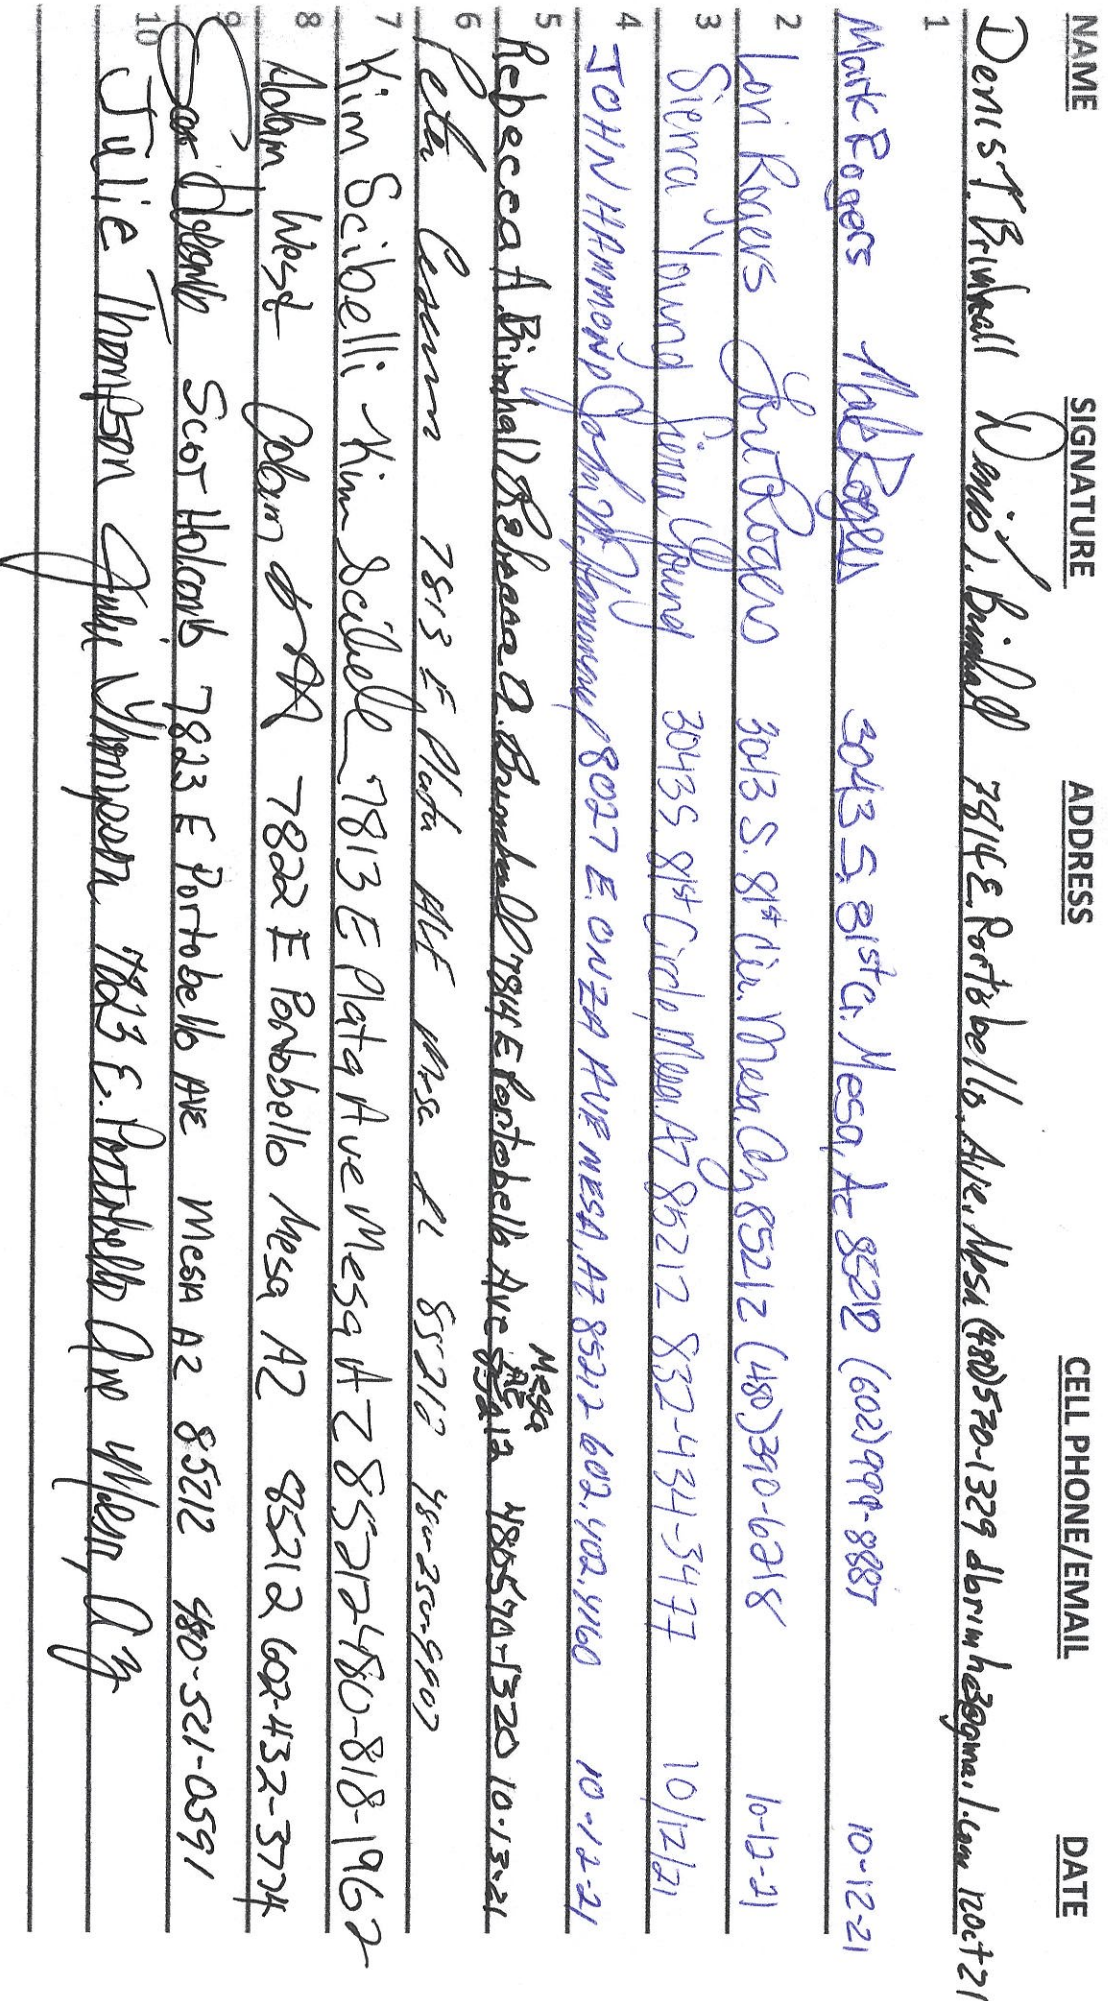 NAME SIGNATURE ADDRESS CELL PHONE/EMAIL DATE
Denis T. Brimhall Denis T. Brimhall 7814 E. Portobello, Ave. Mesa (480)570-1329 dbrimha3@gmail.com 12Oct21
1
Mark Rogers Mark Rogers 3043 S. 81st Ci. Mesa, Az 85212 (602)999-8887 10-12-21
2 Lori Rogers Lori Rogers 3043 S. 81st Cir. Mesa, Az 85212 (480)390-6218 10-12-21
3 Sierra Young Sierra Young 3043 S. 81st Circle, Mesa, AZ 85212 832-434-3477 10/12/21
4 JOHN HAMMOND John M. Hammond 8027 E. ONZA AVE MESA, AZ 85212 602.402.4160 10-12-21
5 Rebecca A. Brimhall Rebecca A. Brimhall 7814 E Portobello Ave Mesa AZ 85212 480570-1320 10-13-21
6 Peter 7813 E, Plata AVE Mesa 85212
7 Kim Scibelli Kim Scibelli 7813 E Plata Ave Mesa AZ 85212 480-818-1962
8 Adam West Adam 7822 E Portobello Mesa AZ 85212 602-432-3774
9 Scott Holcomb 7823 E Portobello AVE MESA AZ 85212 480-521-0591
10 Julie Thompson Julie Thompson 7823 E. Portobello Ave Mesa, Az